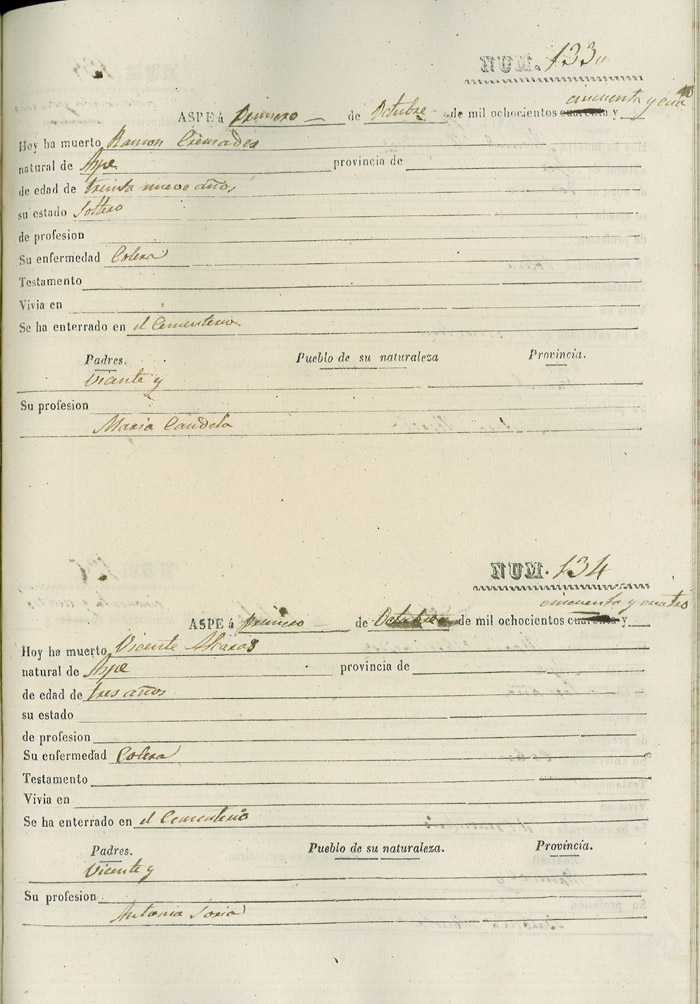 NUM. 133
cincuenta y cua
ASPE á primero de Octubre de mil ochocientos cuarenta y
Hoy ha muerto Ramon Cremades
natural de Aspe provincia de
de edad de treinta nueve años
su estado Soltero
de profesion
Su enfermedad Colera
Testamento
Vivia en
Se ha enterrado en el Cementerio.
Padres. Pueblo de su naturaleza Provincia.
Vicente y
Su profesion
Maria Candela
NUM. 134
cincuenta y cuatro
ASPE á primero de Octubre de mil ochocientos cuarenta y
Hoy ha muerto Vicente Alcaras
natural de Aspe provincia de
de edad de tres años
su estado
de profesion
Su enfermedad Colera
Testamento
Vivia en
Se ha enterrado en el Cementerio
Padres. Pueblo de su naturaleza. Provincia.
Vicente y
Su profesion
Antonia Soria